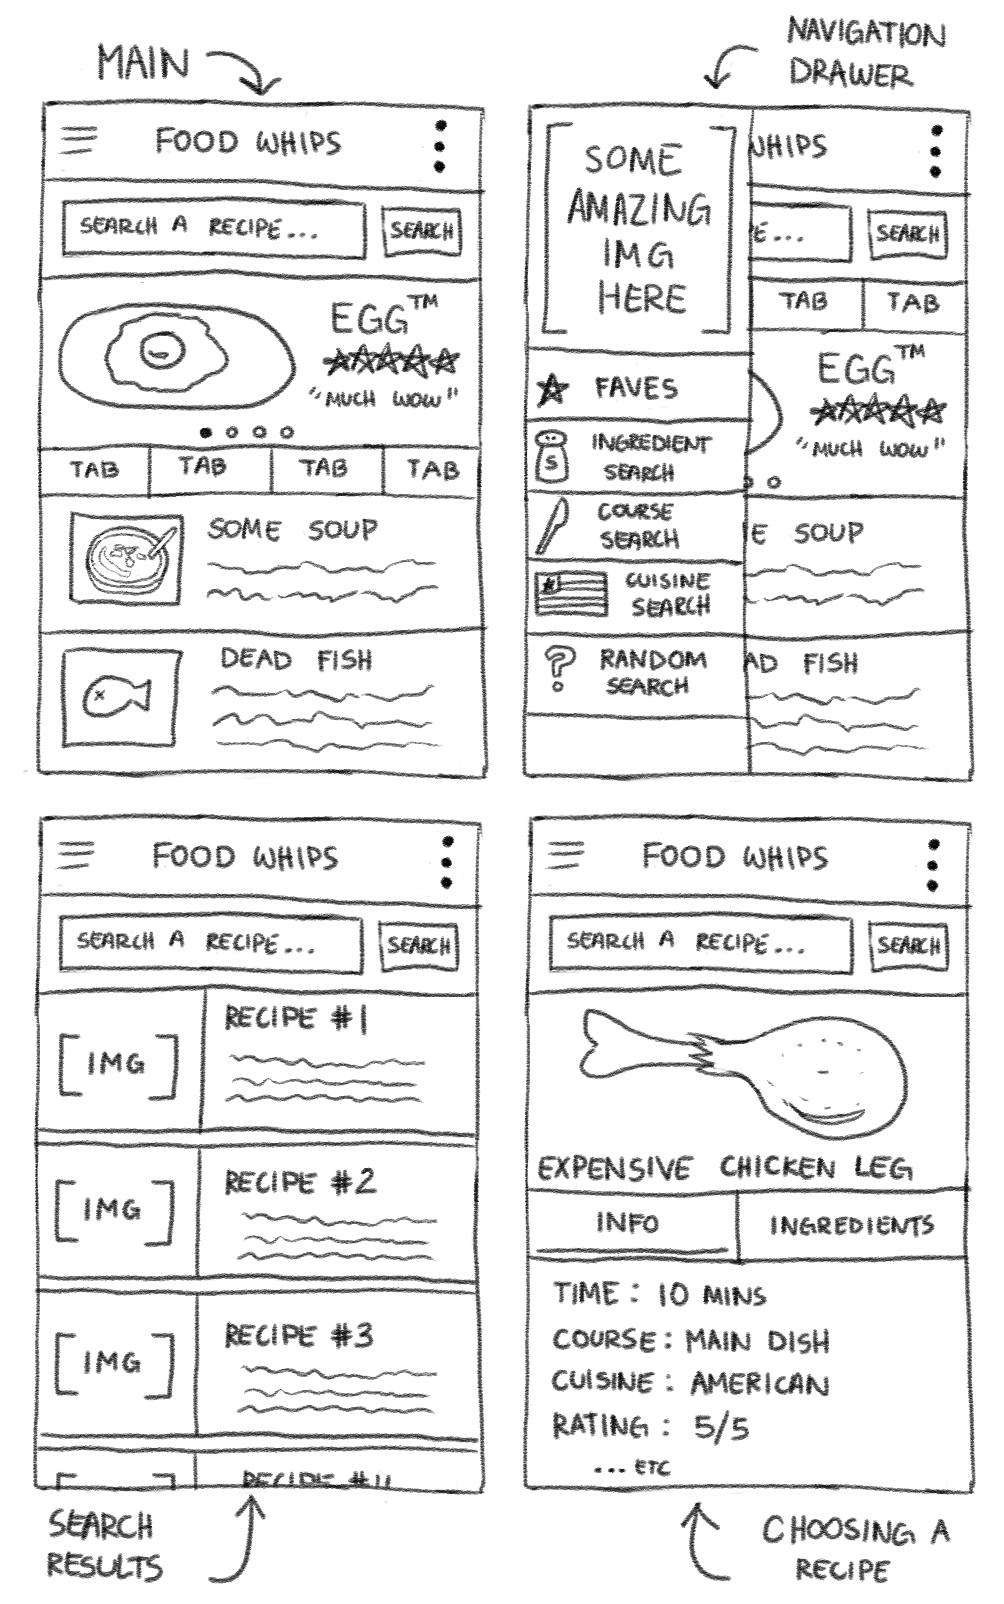 MAIN
FOOD WHIPS
SEARCH A RECIPE...
SEARCH
EGG™
"MUCH WOW"
TAB TAB TAB TAB
SOME SOUP
DEAD FISH
NAVIGATION
DRAWER
SOME
AMAZING
IMG
HERE
WHIPS
E...
SEARCH
TAB TAB
EGG™
"MUCH WOW"
FAVES
S
INGREDIENT
SEARCH
COURSE
SEARCH
CUISINE
SEARCH
RANDOM
SEARCH
E SOUP
AD FISH
FOOD WHIPS
SEARCH A RECIPE...
SEARCH
IMG
RECIPE #1
IMG
RECIPE #2
IMG
RECIPE #3
RECIPE #4
SEARCH
RESULTS
FOOD WHIPS
SEARCH A RECIPE...
SEARCH
EXPENSIVE CHICKEN LEG
INFO
INGREDIENTS
TIME: 10 MINS
COURSE: MAIN DISH
CUISINE: AMERICAN
RATING: 5/5
...ETC
CHOOSING A
RECIPE